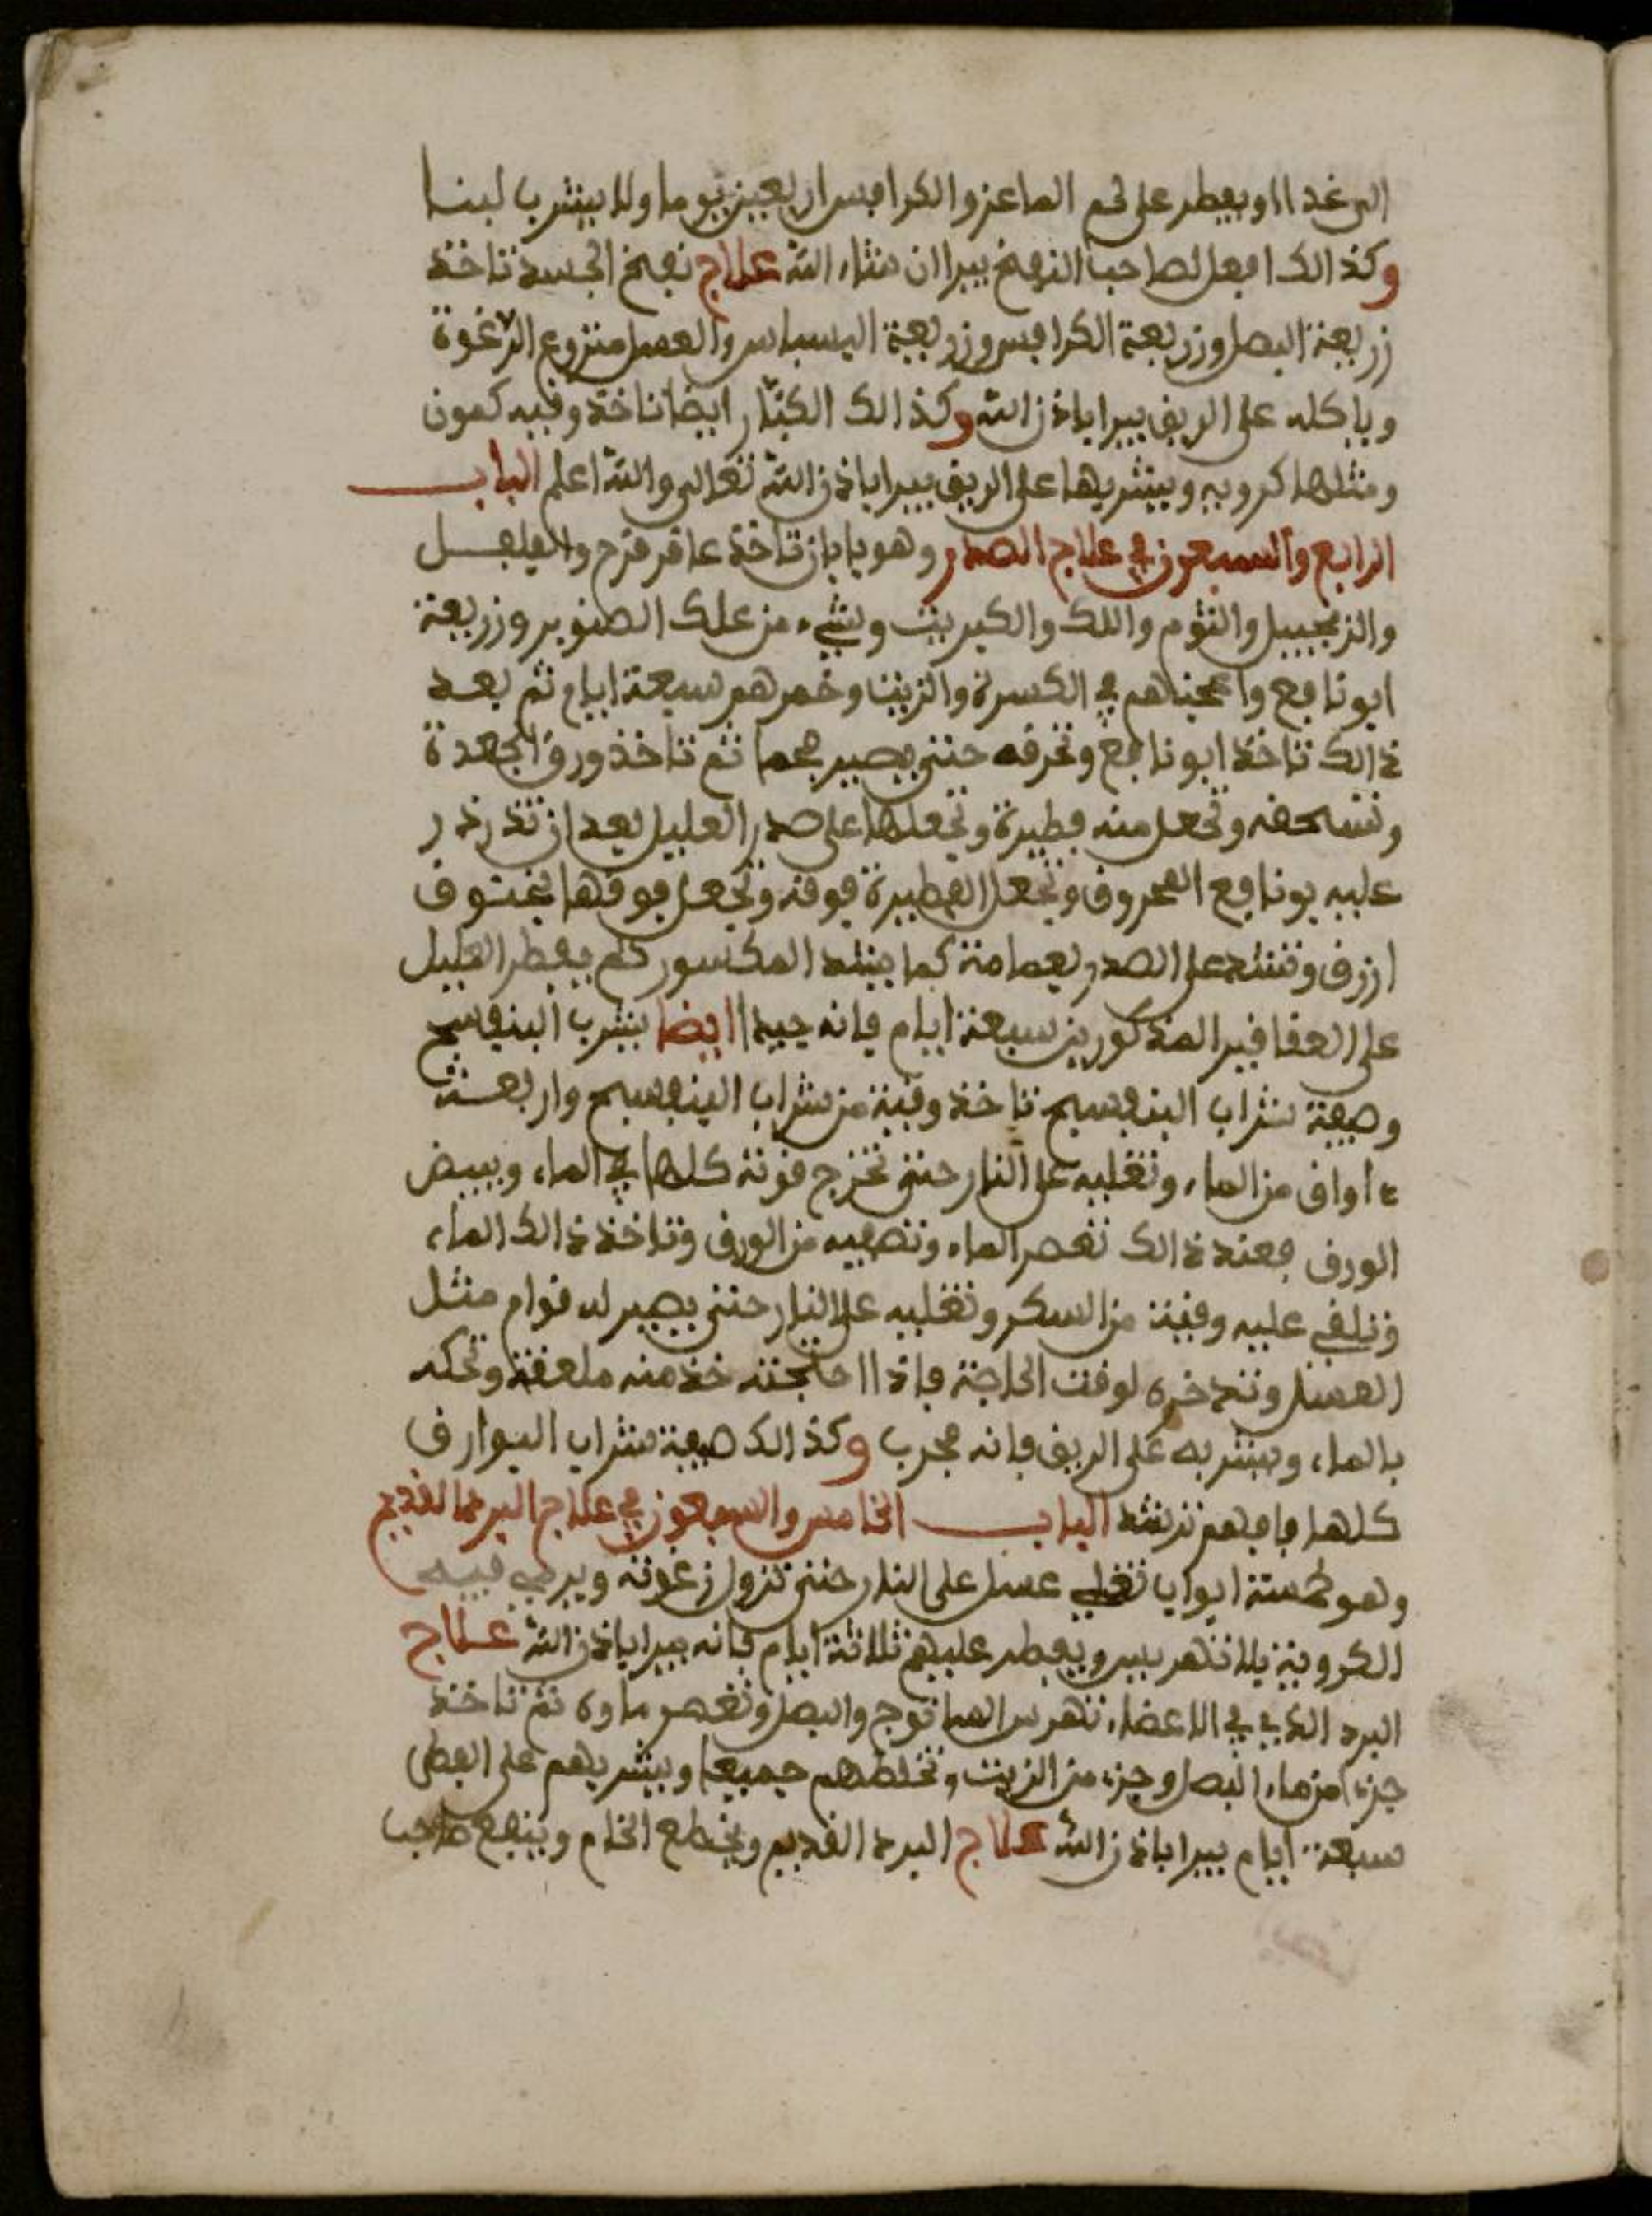 الى غدا ويفطر على لحم الماعز والكرافس اربعين يوما ولا يشرب لبنا
وكذالك افعل لصاحب النفخ يبرا ان شاء الله علاج نفخ الجسد تاخذ
زريعة البصل وزريعة الكرافس وزريعة البسباس والعسل منزوع الرغوة
وياكله على الريق يبرا باذن الله وكذالك ايضا تاخذ وقيه كمون
ومثلها كرويه ويشربها على الريق يبرا باذن الله تعالى والله اعلم الباب
الرابع والسبعون في علاج الصدر وهو بابان تاخذ عاقر قرح والفلفل
والزنجبيل والثوم واللك والكبريت وشيء من علك الصنوبر وزريعة
ابونافع واعجنهم في الكسرة والزيت وخمرهم سبعة ايام ثم بعد
ذالك تاخذ ابونافع وتحرقه حتى يصير فحما ثم تاخذ ورق الجعدة
وتسحقه وتجعل منه فطيرة وتجعلها على صدر العليل بعد ان تذرذر
عليه بونافع المحروق وتجعل الفطيرة فوقه وتجعل فوقها
ازرق وتشد على الصدر بعمامة كما يشد المكسور ثم يفطر العليل
على العقاقير المذكورين سبعة ايام فانه جيد ايضا يشرب البنفسج
وصفة شراب البنفسج تاخذ وقية من شراب البنفسج واربعة
اواق من الماء وتغليه على النار حتى تخرج قوته كلها في الماء ويبيض
الورق فعند ذالك تعصر الماء وتصفيه من الورق وتاخذ ذالك الماء
وتلقي عليه وقية من السكر وتغليه على النار حتى يصير له قوام مثل
العسل وتدخره لوقت الحاجة فاذا احتجته خذ منه ملعقة وتحكه
بالماء ويشربه على الريق فانه مجرب وكذالك صفة شراب النوارق
كلها فافهم ترشد الباب الخامس والسبعون في علاج البرد القديم
وهو خمسة ابواب تغلي عسل على النار حتى تزول رغوته ويرمي فيه
الكروية بلا تهريس ويفطر عليهم ثلاثة ايام فانه يبرا باذن الله علاج
البرد الذي في الاعضاء تهرس الفوج والبصل وتعصر ماوه ثم تاخذ
جزءا من ماء البصل وجزء من الزيت وتخلطهم جميعا ويشربهم على الفطر
سبعة ايام يبرا باذن الله علاج البرد القديم ويقطع الخام وينفع صاحب